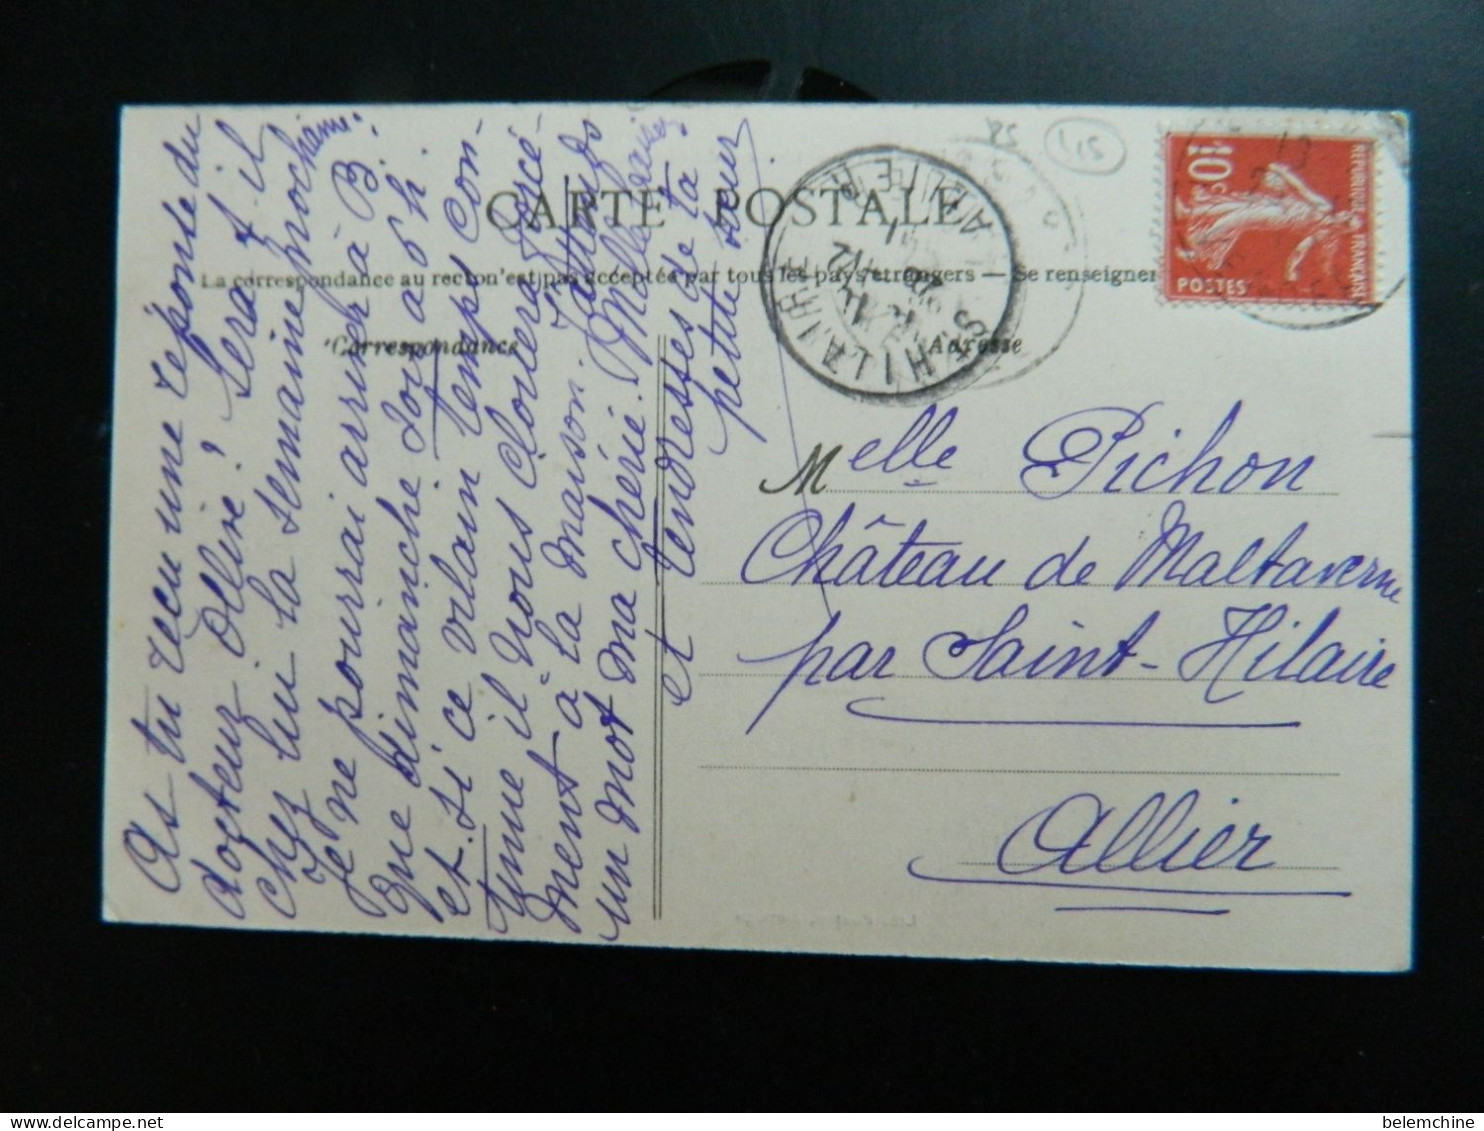 CARTE POSTALE
La correspondance au recto n'est pas acceptée par tous les pays étrangers — Se renseigner
Correspondance
Adresse
As tu reçu une réponse du
docteur Ollive? Sera t-il
chez lui la semaine prochaine?
Je ne pourrai arriver à B.
que dimanche soir à 6h
et si ce vilain temps con-
tinue il nous clouera forcé-
ment à la maison. J'attends
un mot ma chérie. Mille baisers
et tendresses de ta
petite sœur
Melle Pichon
Château de Maltaverne
par Saint-Hilaire
Allier
10c
REPUBLIQUE FRANÇAISE
POSTES
ST HILAIRE
ALLIER
belemchine